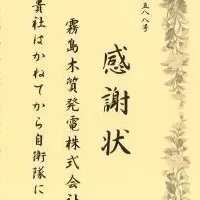 五八八号
感謝状
霧島木質発電株式会社
貴社はかねてから自衛隊に